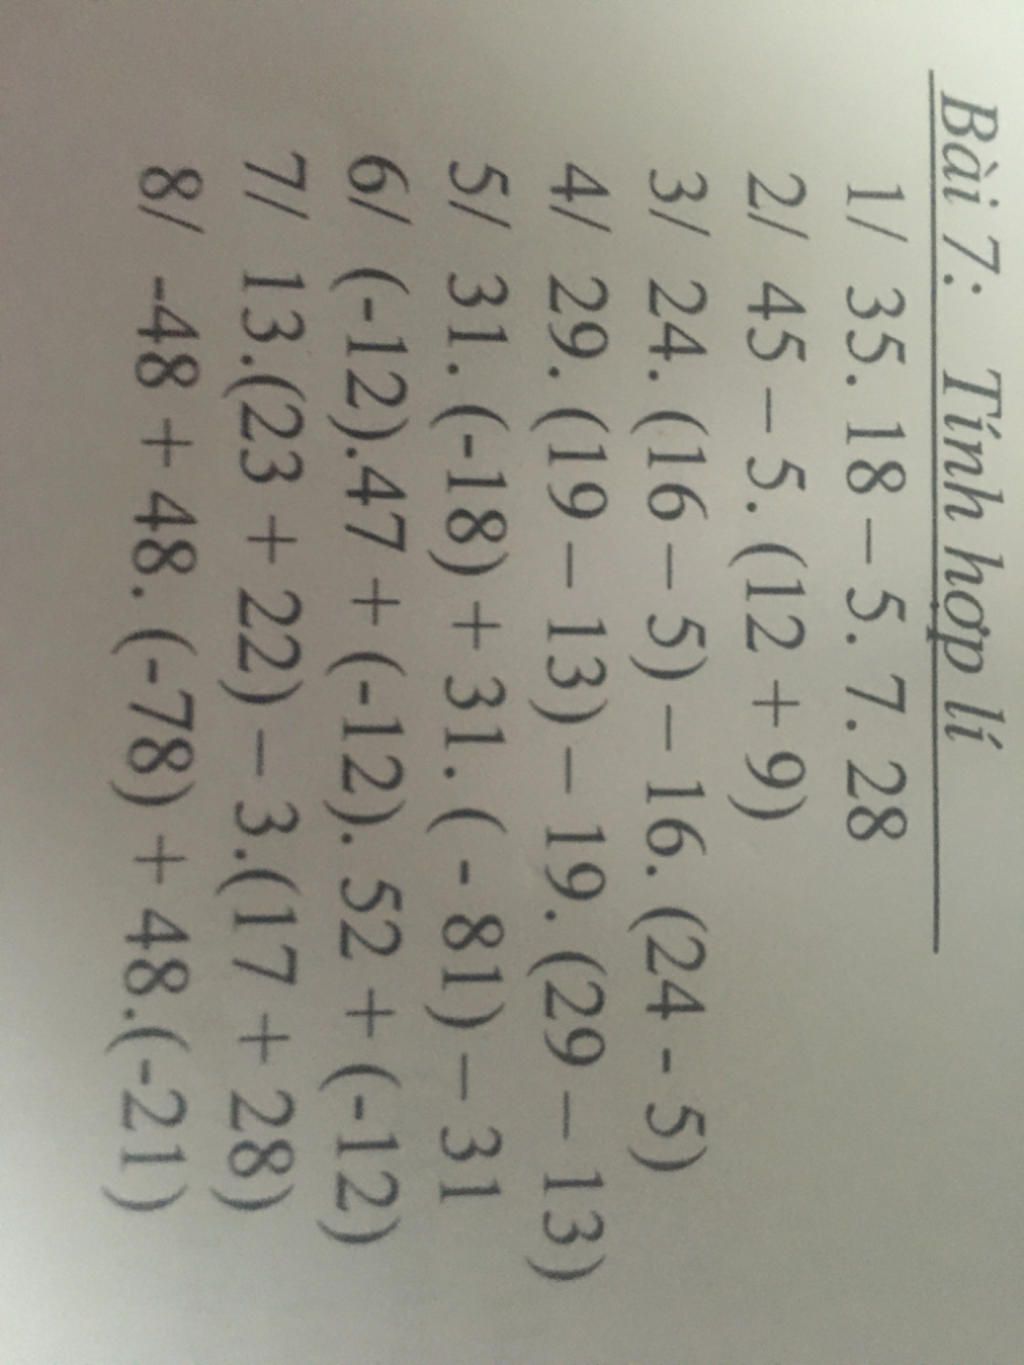 Bài 7: Tính hợp lí
1/ 35. 18 – 5. 7. 28
2/ 45 – 5. (12 + 9)
3/ 24. (16 – 5) – 16. (24 - 5)
4/ 29. (19 – 13) – 19. (29 – 13)
5/ 31. (-18) + 31. ( - 81) – 31
6/ (-12).47 + (-12). 52 + (-12)
7/ 13.(23 + 22) – 3.(17 + 28)
8/ -48 + 48. (-78) + 48.(-21)